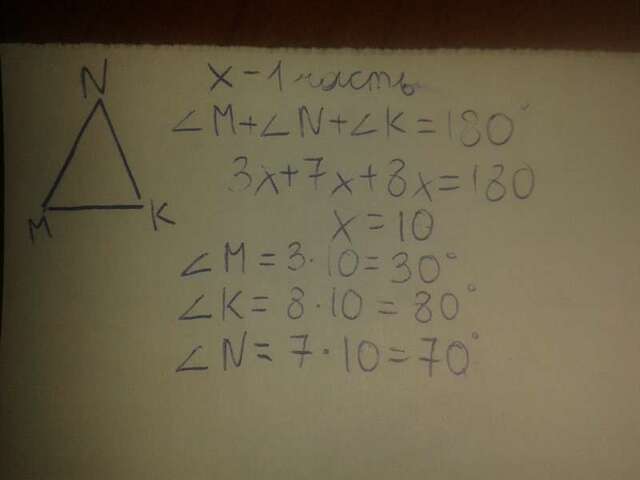 N
M
K
x - 1 часть
∠M+∠N+∠K=180°
3x+7x+8x=180
x=10
∠M=3·10=30°
∠K=8·10=80°
∠N=7·10=70°